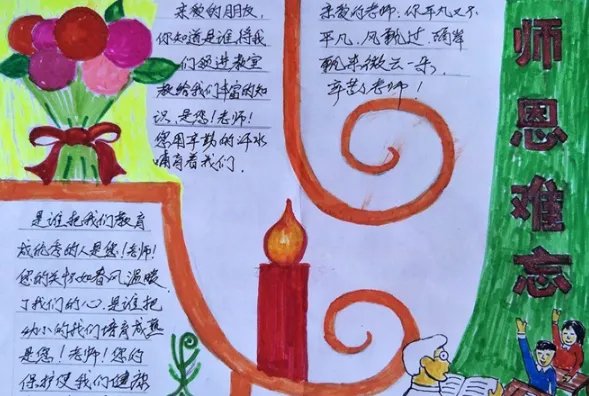 亲爱的朋友,
你知道是谁将我
们领进教室
教给我们丰富的知
识,是您!老师!
您用辛勤的汗水
哺育着我们.
亲爱的老师,你平凡又不
平凡,风飘过,
飘来微云一朵,
辛苦,老师!
师恩难忘
是谁把我们教育
成优秀的人是您!老师!
您的关怀如春风,温暖
了我们的心.是谁把
幼小的我们培育成熟
是您!老师!您的
保护使我们健康